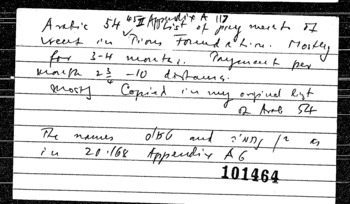 Arabic 54 45 II Appendix A 117
List of payments of
recent in Pious Foundation. Mostly
for 3-4 months. Payment per
month 2 3/4 - 10 distams.
mostly Copied in my original list
of Arab 54
The names and as
in 20.168 Appendix A 6
101464